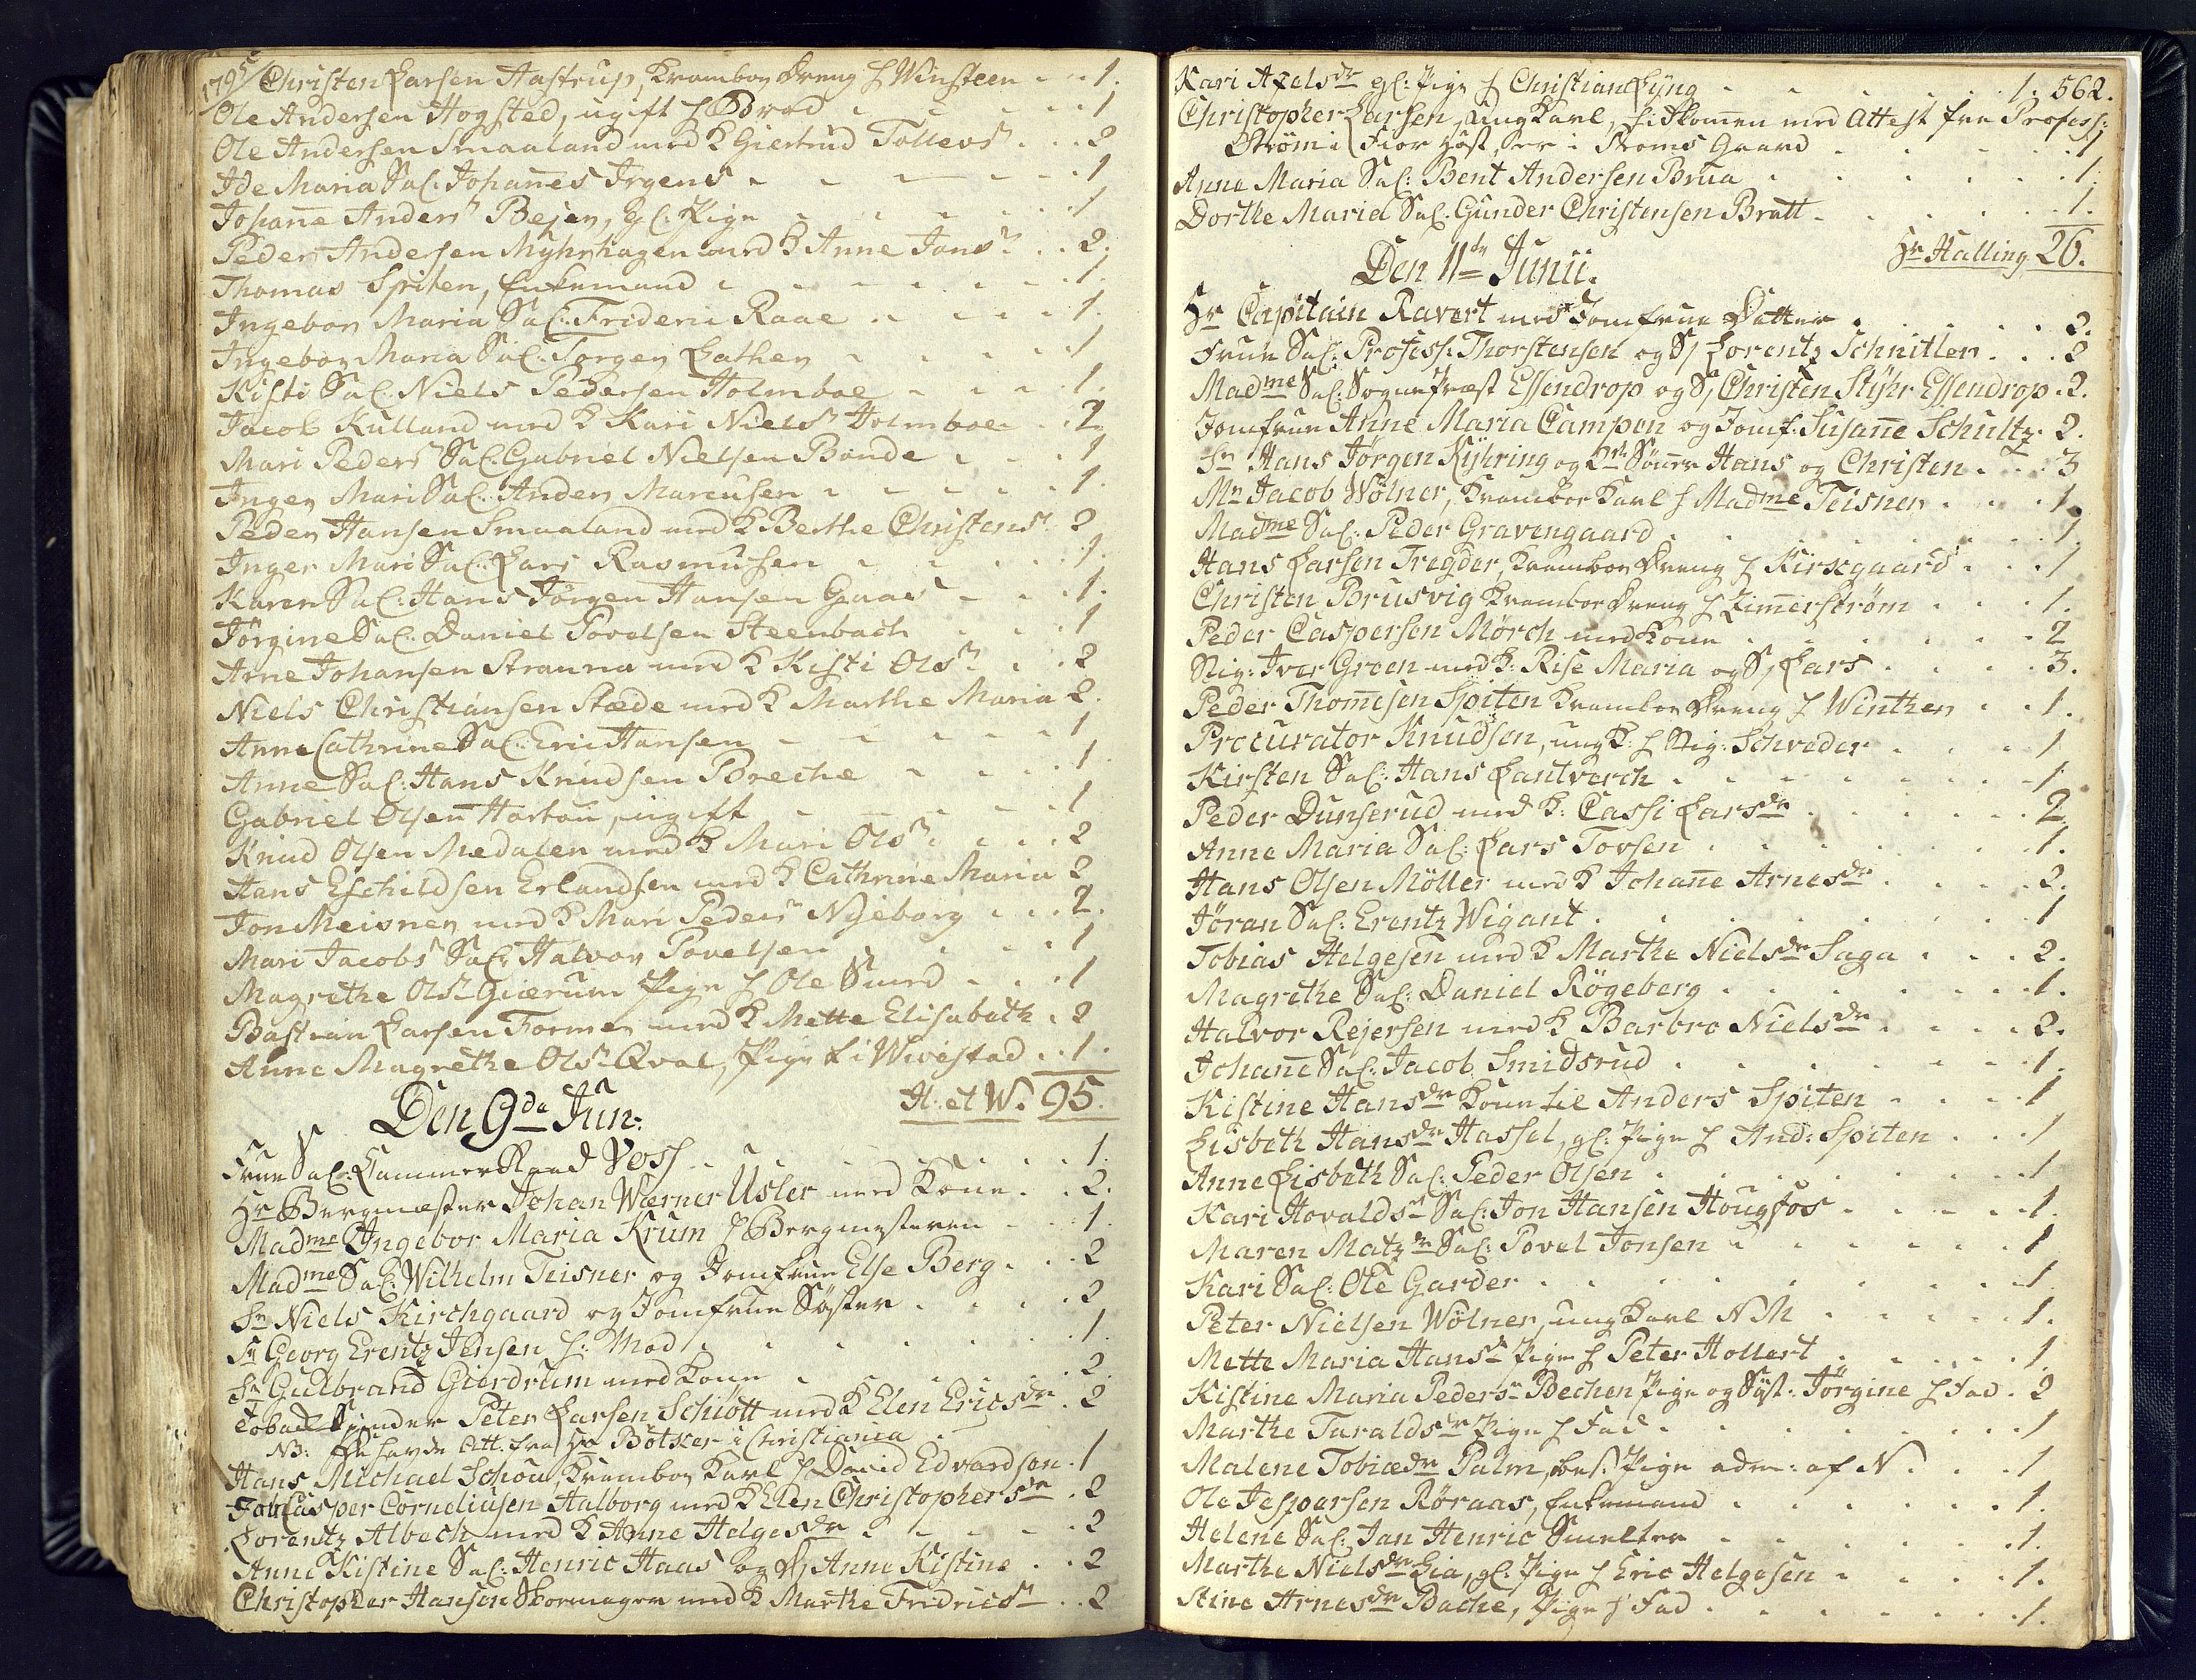 1795 Christen Larsen Aastrup, Krambor Dreng h Winsteen 1.
Ole Andersen Hogsted, ugift h Edvad 1
Ole Andersen Smaaland med K Giertrud Tollevs 2
Ide Maria Sal: Johanes Irgens 1
Johane Anders Bejer, gl. Pige 1
Peder Andersen Myhrhagen med K Anne Jans 2.
Thomas Spiten, Enkemand 1.
Ingebor Maria Sal: Frideric Raae 1.
Ingebor Maria Sal: Jørgen Lathen 1
Kisti Sal: Niels Pedersen Holmboe 1.
Jacob Kulland med K Kari Niels Holmboe 2.
Mari Peders Sal: Gabriel Nielsen Bonde 1
Inger Mari Sal: Anders Marcusen 1.
Peder Hansen Smaaland med K Berthe Christens 2
Inger Mari Sal: Lars Rasmusen 1.
Karen Sal: Hans Jørgen Hansen Gaas 1.
Jørgine Sal: Daniel Povelsen Steenbach 1
Arne Johansen Stranna med K Kisti Ols 2
Niels Christiansen Stæde med K Marthe Maria 2.
Anne Cathrine Sal: Eric Hansen 1
Anne Sal: Hans Knudsen Breche 1.
Gabriel Olsen Hartou, ugift 1
Knud Olsen Medalen med K Mari Ols 2
Hans Eschildsen Erlandsen med K Cathrine Maria 2
Jon Meisner med K Mari Peders Nyeborg 2.
Mari Jacobs Sal: Halvor Povelsen 1
Magrethe Ols Giærum Pige h Ole Smed 1
Bastian Larsen Former med K Mette Elisabeth 2
Anne Magrethe Ols Qval, Pige h Wivestad 1.
H. et W. 95.
Den 9de Jun:
Frue Sal: Cammer Raad Voss 1.
Hr Bergmester Johan Wærner Usler med Kone 2.
Madme Ingebor Maria Krum h Bergmesteren 1.
Madme Sal: Wilhelm Teisner og Jomfrue Else Berg 2
Sr Niels Kirchgaard og Jomfrue Søster 2
Sr Georg Erentz Jensen h: Mod 1.
Sr Gulbrand Gierdrum med Kone 2.
Tobak Spinder Peter Larsen Schiött med K Elen Ericsdr 2
NB: De havde Att: fra Hr Bötker i Christiania
Hans Michael Schou, Krambor Karl h David Edvardson 1
Joh Casper Corneliusen Aalborg med K Elen Christophersdr 2
Lorentz Albech med K Anne Helgesdr 2
Anne Kistine Sal: Henric Haas og D Anne Kistine 2
Christopher Hansen Skomager med K Marthe Fridrics 2
Kari Axelsdr gl: Pige h Christian Lÿng 1. 562.
Christopher Larsen, Ung Karl, hidkommen med Attest fra Profess:
Ström i Fior Høst, ser i Stroms Gaard 1
Anne Maria Sal: Bent Andersen Brua 1.
Dorthe Maria Sal: Gunder Christensen Bratt 1.
Hr Halling 26.
Den 11te Junii.
Hr Capitain Ravert med Jomfrue Datter 2.
Frue Sal: Profess: Thorstensen og S Lorentz Schnitler 2
Madme Sal: Sognepræst Essendrop og S Christen Stÿhr Essendrop 2.
Jomfrue Anne Maria Campen og Jomf: Susanne Schultz 2.
Sr Hans Jørgen Kÿhring og 2de Sönner Hans og Christen 3
Mr Jacob Wölner, Krambor Karl h Madme Teisner 1.
Madme Sal: Peder Gravengaard 1.
Hans Larsen Tregder, Krambor Dreng h Kirsegaard 1
Christen Brusvig Krambor Dreng h Zimerström 1.
Peder Caspersen Mörch med Kone 2
Stig: Iver Green med K: Rise Maria og S Lars 3.
Peder Thomesen Spiten Krambor Dreng h Winther 1.
Procurator Knudsen, ung K: h Stig: Schreder 1
Kirsten Sal: Hans Lantverch 1.
Peder Dunserud med K: Cassi Larsdr 2
Anne Maria Sal: Lars Tovsen 1.
Hans Olsen Möller med K Johane Arnesdr 2.
Jöran Sal: Erentz Wigant 1
Tobias Helgesen med K Marthe Nielsdr Saga 2.
Magrethe Sal: Daniel Rögeberg 1.
Halvor Rejersen med K Barbro Nielsdr 2.
Johane Sal: Jacob Smidsrud 1.
Kistine Hansdr Kone til Anders Spiten 1
Lisbeth Hansdr Hassel, gl: Pige h And: Spiten 1
Anne Lisbeth Sal: Peder Olsen 1
Kari Hovaldsdr Sal: Jon Hansen Hougfos 1.
Maren Matzdr Sal: Povel Jonsen 1
Kari Sal: Ole Garder 1.
Peter Nielsen Wölner, ung Karl NM 1.
Mette Maria Hansdr Pige h Peter Hollert 1.
Kistine Maria Pedersdr Bechen Pige og Syst: Jörgine h Fad 2
Marthe Taraldsdr Pige h Fad 1
Malene Tobiædr Palm, bes: Pige adm: af N 1
Ole Jespersen Röraas, Enkemand 1.
Helene Sal: Jan Henric Smelter 1.
Marthe Nielsdr Lia, gl: Pige h Eric Helgesen 1.
Stine Arnesdr Bache, Pige h Fad 1.